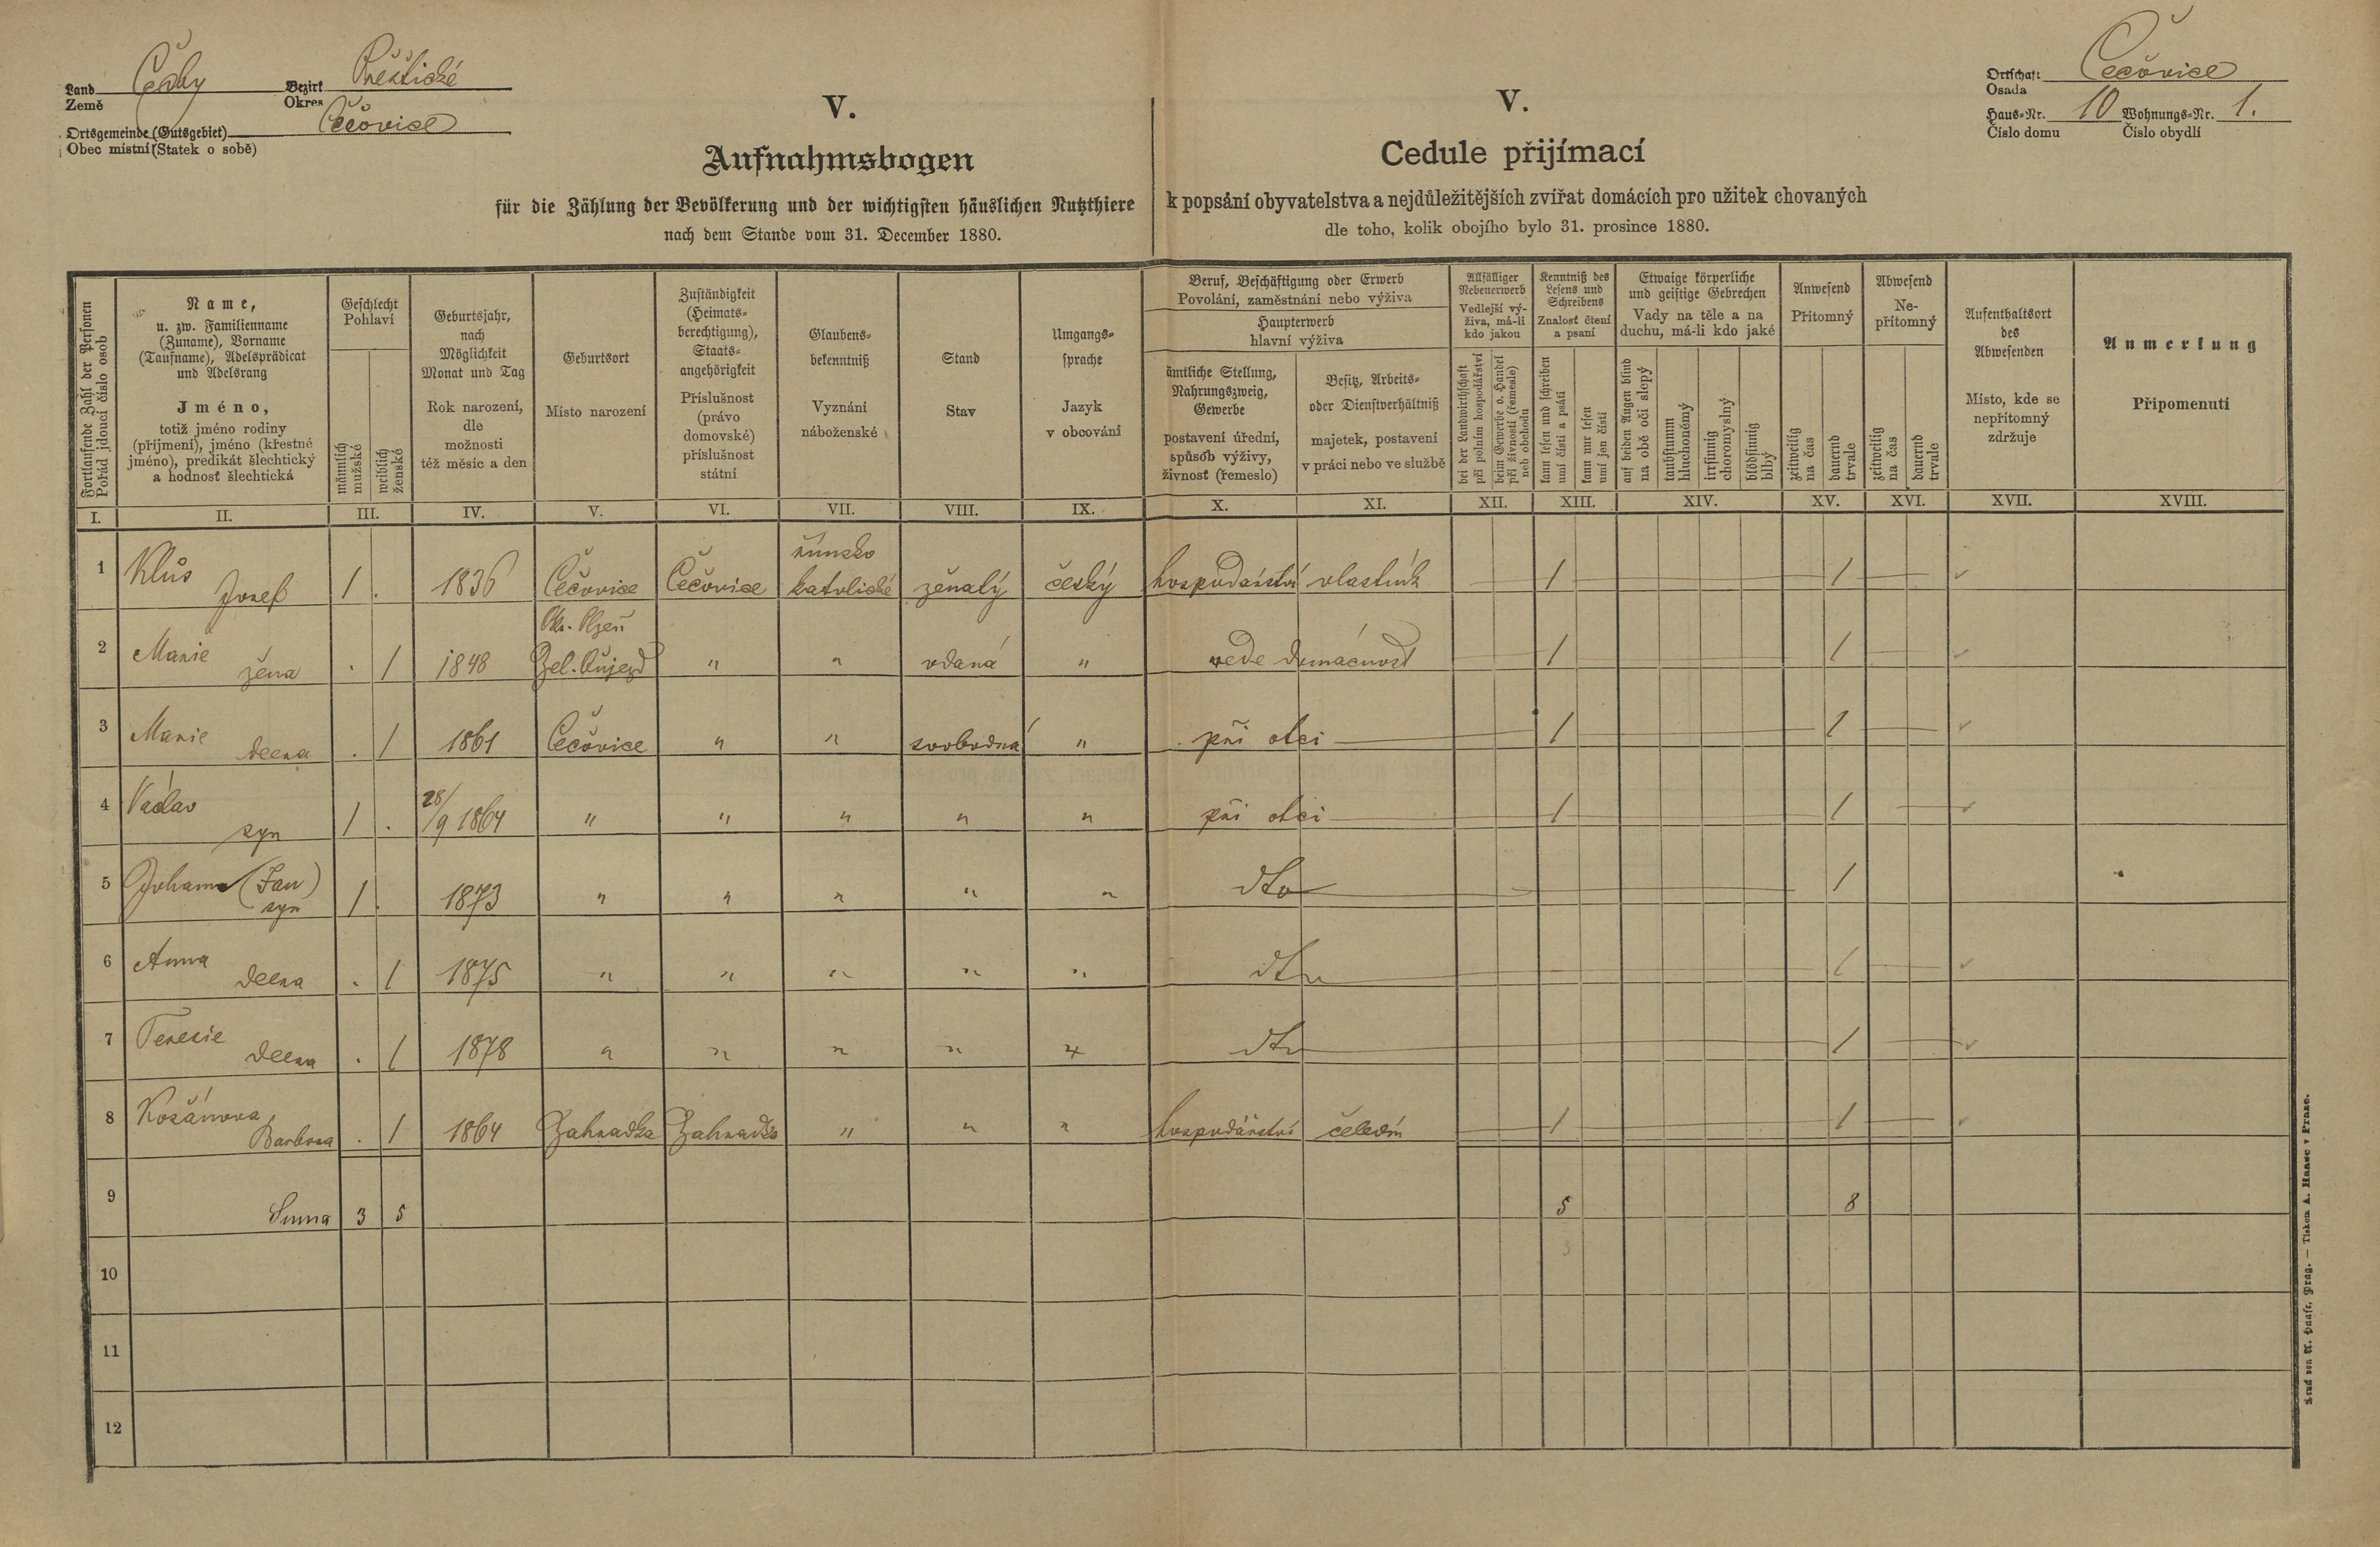 Land Čechy Bezirk Přeštické
Země Okres
Ortsgemeinde (Gutsgebiet) Čečovice
Obec místní (Statek o sobě)
V.
Aufnahmsbogen
für die Zählung der Bevölkerung und der wichtigsten häuslichen Nutzthiere
nach dem Stande vom 31. December 1880.
V.
Cedule přijímací
k popsání obyvatelstva a nejdůležitějších zvířat domácích pro užitek chovaných
dle toho, kolik obojího bylo 31. prosince 1880.
Ortschaft Čečovice
Osada
Haus-Nr. 10 Wohnungs-Nr. 1.
Číslo domu Číslo obydlí
Fortlaufende Zahl der Personen
Pořád jdoucí číslo osob
Name,
u. zw. Familienname
(Zuname), Vorname
(Taufname), Adelsprädicat
und Adelsrang
Jméno,
totiž jméno rodiny
(příjmení), jméno (křestné
jméno), predikát šlechtický
a hodnosť šlechtická
Geschlecht
Pohlaví
männlich
mužské
weiblich
ženské
Geburtsjahr,
nach
Möglichkeit
Monat und Tag
Rok narození,
dle
možnosti
též měsíc a den
Geburtsort
Místo narození
Zuständigkeit
(Heimats-
berechtigung),
Staats-
angehörigkeit
Příslušnost
(právo
domovské)
příslušnost
státní
Glaubens-
bekenntniß
Vyznání
náboženské
Stand
Stav
Umgangs-
sprache
Jazyk
v obcování
Beruf, Beschäftigung oder Erwerb
Povolání, zaměstnání nebo výživa
Haupterwerb
hlavní výživa
ämtliche Stellung,
Nahrungszweig,
Gewerbe
postavení úřední,
způsob výživy,
živnost (řemeslo)
Besitz, Arbeits-
oder Dienstverhältniß
majetek, postavení
v práci nebo ve službě
Allfälliger
Nebenerwerb
Vedlejší vý-
živa, má-li
kdo jakou
bei der Landwirthschaft
při polním hospodářství
beim Gewerbe o. Handel
při živnosti (řemeslo)
neb obchodu
Kenntniß des
Lesens und
Schreibens
Znalosť čtení
a psaní
kann lesen und schreiben
umí čísti a psáti
kann nur lesen
umí jen čísti
Etwaige körperliche
und geistige Gebrechen
Vady na těle a na
duchu, má-li kdo jaké
auf beiden Augen blind
na obě oči slepý
taubstumm
hluchoněmý
irrsinnig
choromyslný
blödsinnig
blbý
Anwesend
Přítomný
zeitweilig
na čas
dauernd
trvale
Abwesend
Ne-
přítomný
zeitweilig
na čas
dauernd
trvale
Aufenthaltsort
des
Abwesenden
Místo, kde se
nepřítomný
zdržuje
Anmerkung
Připomenutí
I. II. III. IV. V. VI. VII. VIII. IX. X. XI. XII. XIII. XIV. XV. XVI. XVII. XVIII.
1 Klůs Josef 1 . 1836 Čečovice Čečovice římsko katolické ženatý český hospodářství vlastník 1 1
2 Marie žena . 1 1848 Okr. Plzeň Zel. Oujezd " " vdaná " vede domácnosť 1 1
3 Marie dcera . 1 1861 Čečovice " " svobodná " při otci 1 1
4 Václav syn 1 . 28/9 1864 " " " " " při otci 1 1
5 Johann (Jan) syn 1 . 1873 " " " " " dto 1
6 Anna dcera . 1 1875 " " " " " dto 1
7 Terezie dcera . 1 1878 " " " " " dto 1
8 Barbora . 1 1864 Zahradka Zahradka " " " hospodářství čeledín 1 1
9 Suma 3 5 5 8
10
11
12
Druck von A. Haase, Prag. — Tiskem A. Haase v Praze.